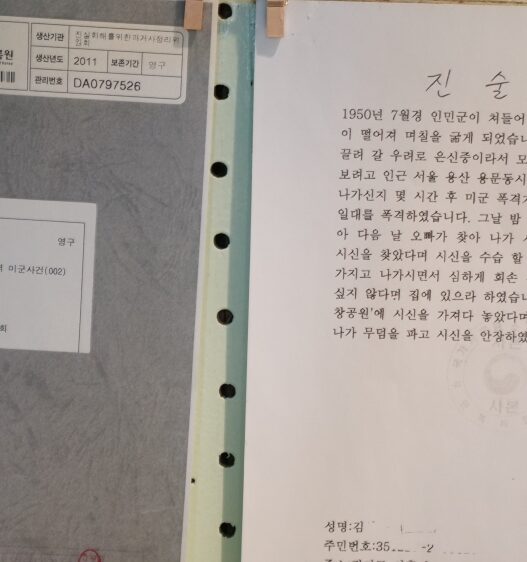 생산기관
진실화해를위한과거사정리위
원회
생산년도 2011 보존기간 영구
관리번호 DA0797526
영구
미군사건(002)
회
진 술
1950년 7월경 인민군이 쳐들어
이 떨어져 며칠을 굶게 되었습니
끌려 갈 우려로 은신중이라서 모
보려고 인근 서울 용산 용문동시
나가신지 몇 시간 후 미군 폭격기
일대를 폭격하였습니다. 그날 밤
아 다음 날 오빠가 찾아 나가 시
시신을 찾았다며 시신을 수습 할
가지고 나가시면서 심하게 회손
싶지 않다며 집에 있으라 하였습니
창공원'에 시신을 가져다 놓았다며
나가 무덤을 파고 시신을 안장하였
사본
성명:김
주민번호:35
-2